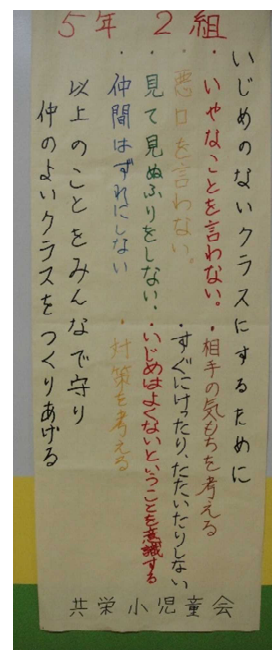 5年 2組
いじめのないクラスにするために
・いやなことを言わない。
・相手の気もちを考える
・悪口を言わない。
・すぐにけったり、たたいたりしない
・見て見ぬふりをしない。
・いじめはよくないということを意識する
・仲間はずれにしない
・対策を考える
以上のことをみんなで守り
仲のよいクラスをつくりあげる
共栄小児童会